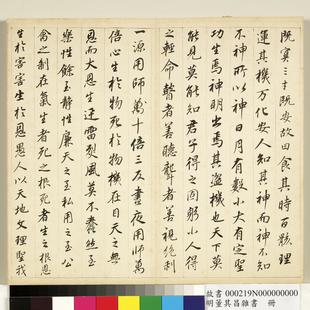 既宜三才既安故曰食其時百骸理
運其機万化安人知其神而神不知
不神所以神日月有數小大有定聖
功生焉神明出焉其盜機也天下莫
能見莫能知君子得之固躬小人得
之輕命瞽者善聽聾者善視絕利
一源用師萬十倍三反晝夜用師萬
倍心生於物死於物機在目天之無
恩而大恩生迅雷烈風莫不蠢然至
樂性餘至靜性廉天之至私用之至公
禽之制在氣生者死之根死者生之根恩
生於害害生於恩愚人以天地文理聖我
故書 000219N000000000
明董其昌雜書 冊